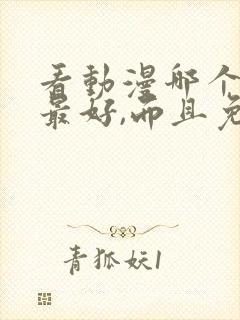 看動漫哪个
最好,而且免
青狐妖1